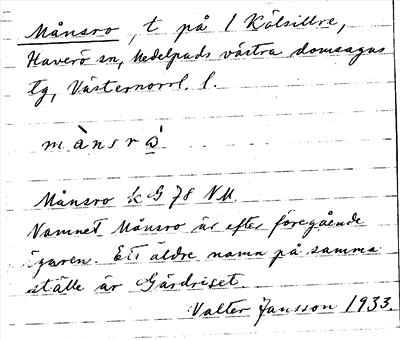 Månsro, t på 1 Kölsillre,
Haverö sn, Medelpads västra domsagas
tg, Västernorrl. l.
månsrò
Månsro k G 78 NM.
Namnet Månsro är efter föregående
ägaren. Ett äldre namn på samma
ställe är Gärdriset.
Valter Jansson 1933.